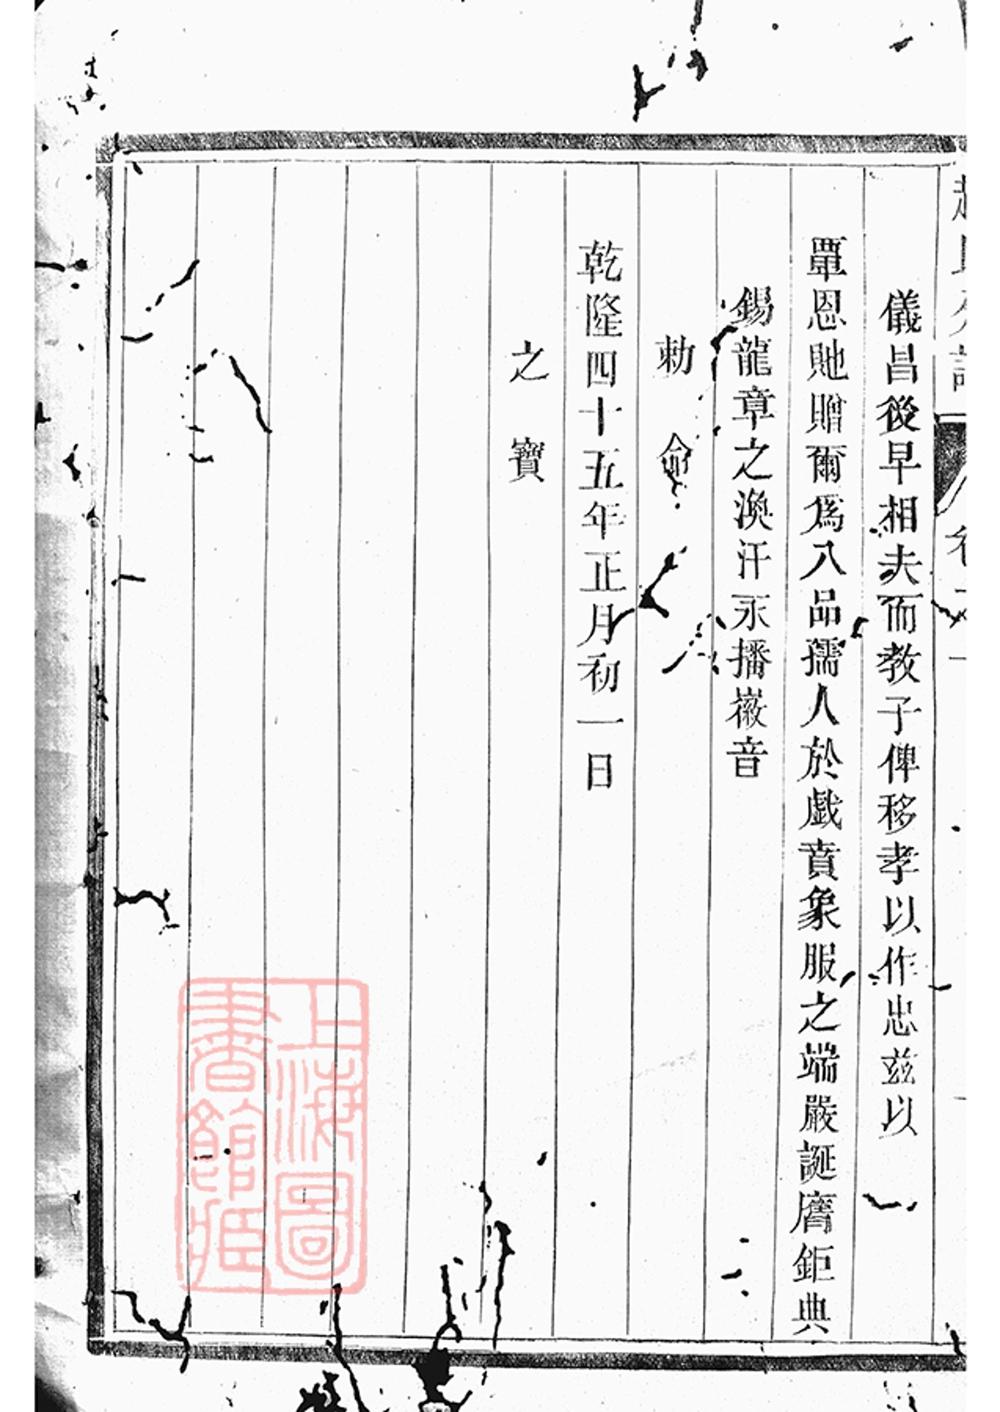 儀昌後早相夫而教子俾移孝以作忠茲以
覃恩貤贈爾爲八品孺人於戲賁象服之端嚴誕膺鉅典
錫龍章之渙汗永播徽音
勅命
乾隆四十五年正月初一日
之寶
上海圖書館藏